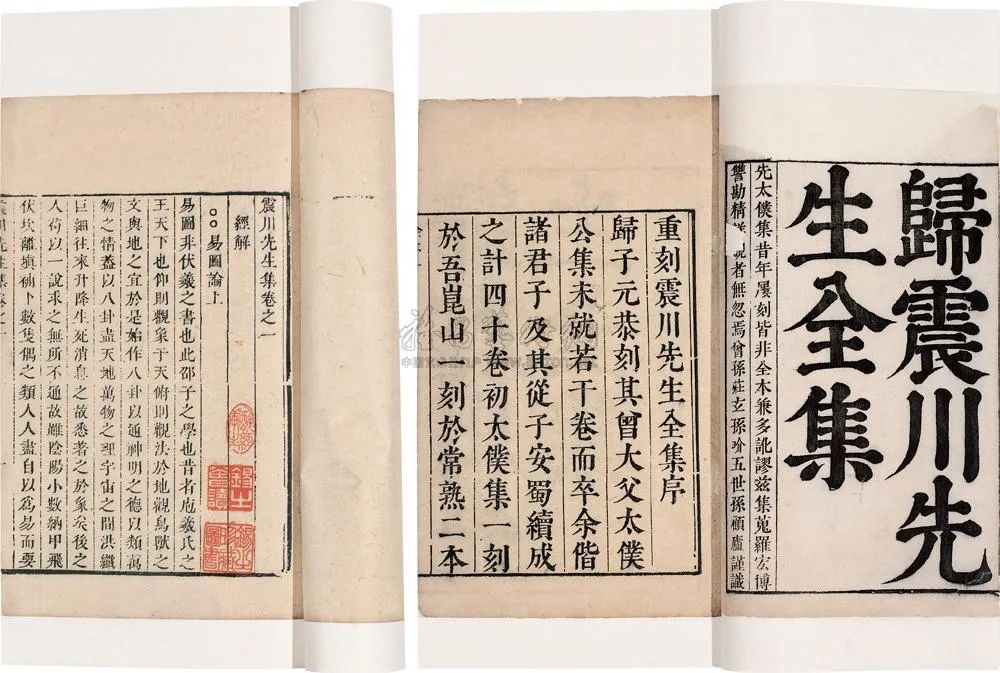 歸震川先
生全集
先太僕集昔年屢刻皆非全本兼多訛謬茲集蒐羅宏博
讐勘精 者無忽焉曾孫莊玄孫玠五世孫顧廬謹識
重刻震川先生全集序
歸子元恭刻其曾大父太僕
公集未就若干卷而卒余偕
諸君子及其從子安蜀續成
之計四十卷初太僕集一刻
於吾崑山一刻於常熟二本
震川先生集卷之一
經解
易圖論上
易圖非伏羲之書也此邵子之學也昔者庖羲氏之
王天下也仰則觀象于天俯則觀法於地觀鳥獸之
文與地之宜於是始作八卦以通神明之德以類萬
物之情蓋以八卦盡天地萬物之理宇宙之間洪纖
巨細往來升降生死消息之故悉著之於象矣後之
人苟以一說求之無所不通故雖陰陽小數納甲飛
伏坎離塡補卜數隻偶之類人人盡自以爲易而要
震川先生集卷之一